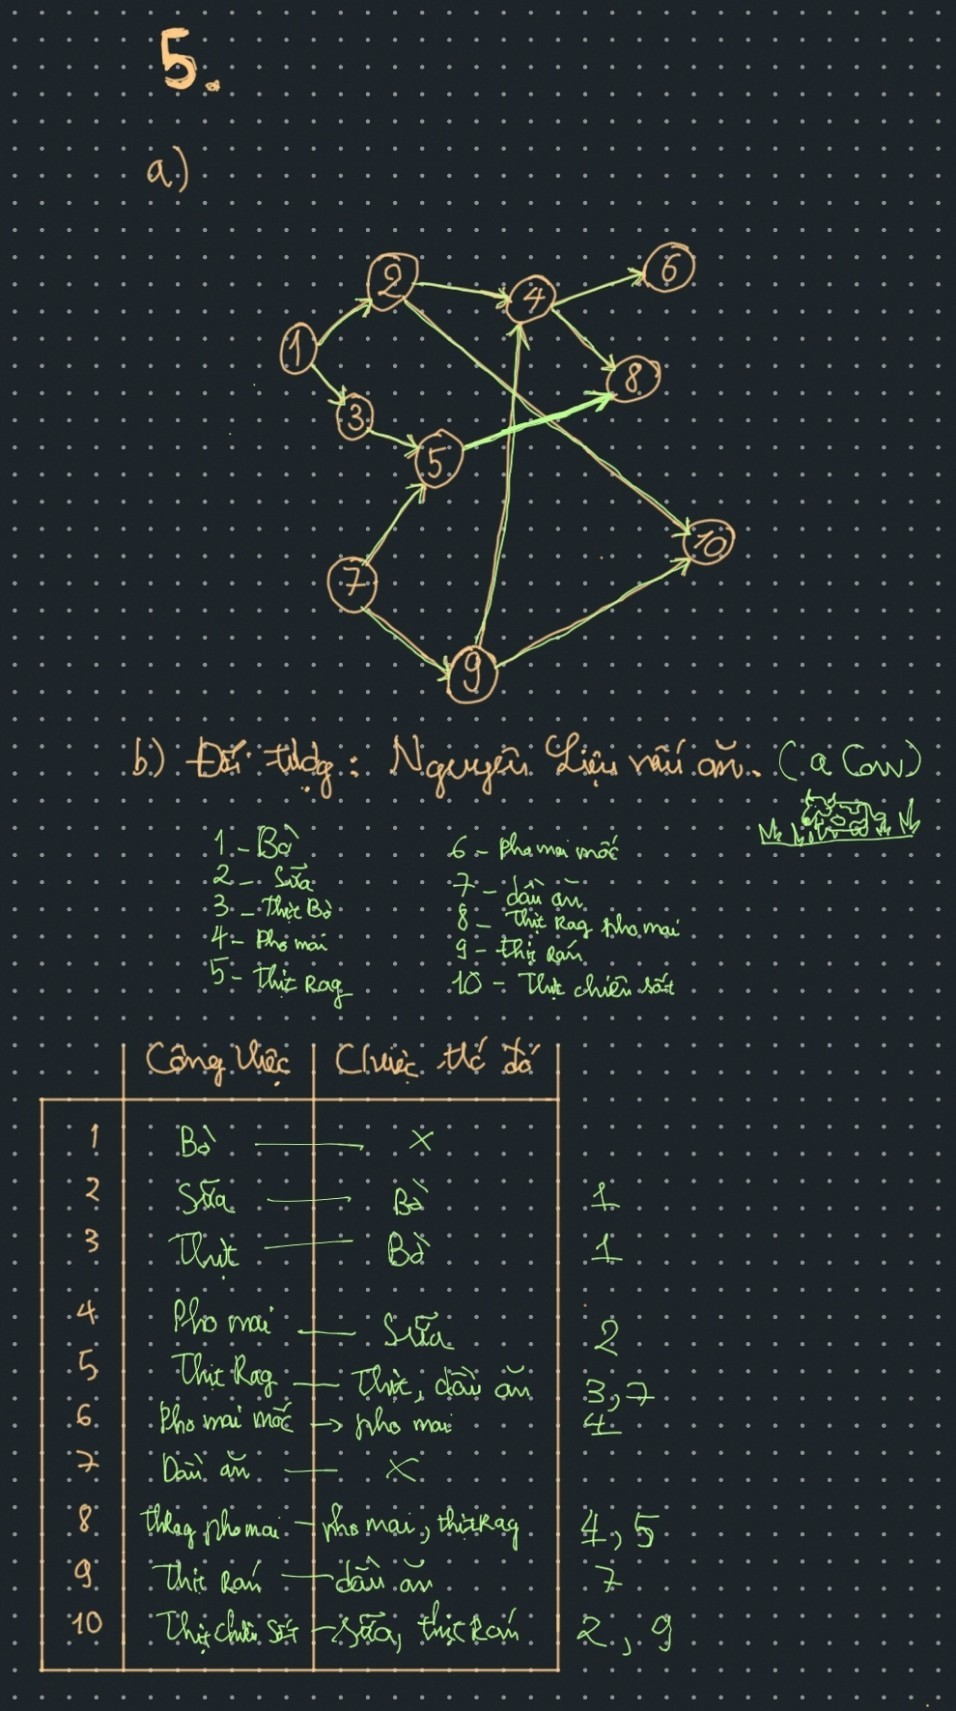 5.
a)
1
2
3
4
5
6
7
8
9
10
b) Đối tượng: Nguyên Liệu nấu ăn. (a Cow)
1 - Bò
2 - Sữa
3 - Thịt Bò
4 - Pho mai
5 - Thịt Rag
6 - Pho mai mốc
7 - dầu ăn
8 - Thịt Rag pho mai
9 - thịt Rán
10 - Thịt chiên sốt
Công việc Chiếc thứ đó
1 Bò — x
2 Sữa — Bò 1
3 Thịt — Bò 1
4 Pho mai — Sữa 2
5 Thịt Rag — Thịt, dầu ăn 3,7
6 Pho mai mốc → pho mai 4
7 Dầu ăn — x
8 thRag pho mai - pho mai, thịt Rag 4,5
9 Thịt Rán — dầu ăn 7
10 Thịt chiên sốt - Sữa, thịt Rán 2, 9